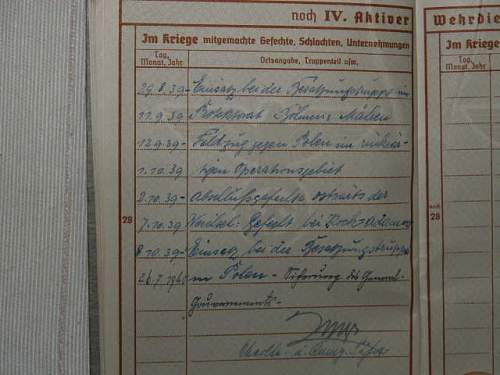 noch IV. Aktiver
Wehrdie
Im Kriege mitgemachte Gefechte, Schlachten, Unternehmungen
Im Kriege
Tag, Monat, Jahr
Ortsangabe, Truppenteil usw.
Tag, Monat, Jahr
29.8.39- Einsatz bei der Besatzungstruppe im
11.9.39 Protektorat Böhmen u. Mähren
12.9.39- Feldzug gegen Polen im rückwär-
1.10.39 tigen Operationsgebiet
2.10.39- Abschlußgefechte ostwärts der
28
7.10.39 Weichsel: Gefecht bei Kock-Adamow
8.10.39- Einsatz bei der Besatzungstruppe
26.7.1940 in Polen - Sicherung des General-
gouvernements-
28